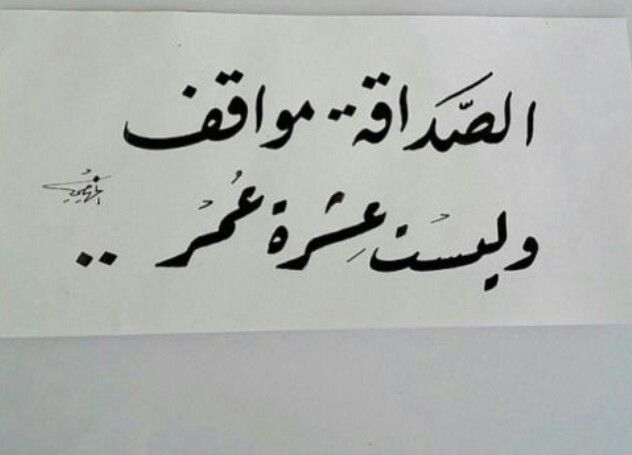 الصَّداقة.. مواقف
وليسْت عِشرة عُمْر ..